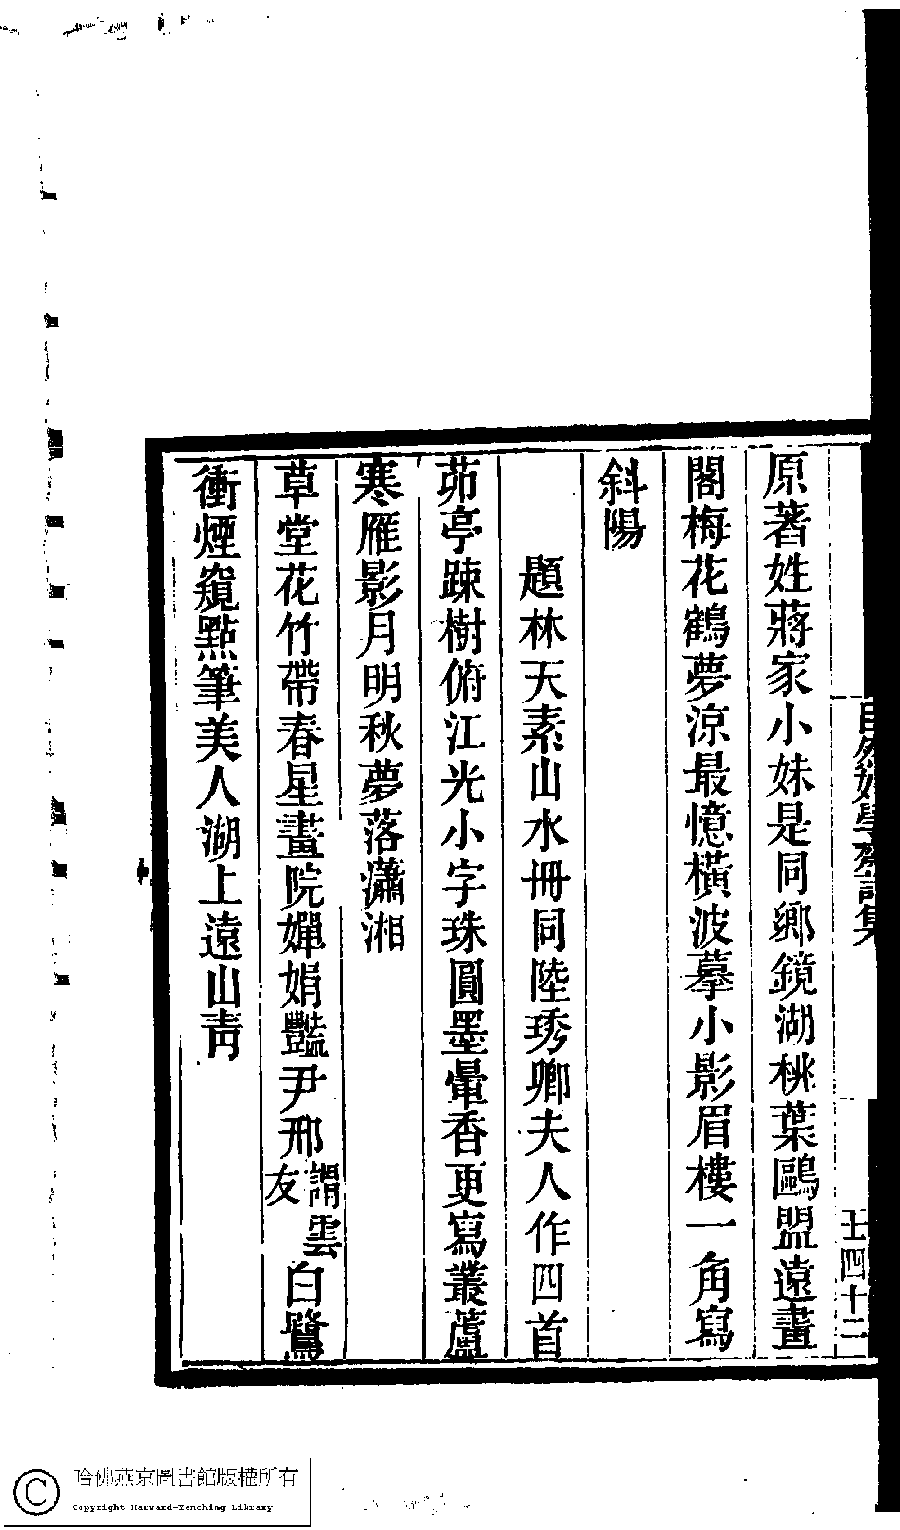 自然好學齋詩集
壬四十二
原著姓蔣家小妹是同鄉鏡湖桃葉鷗盟遠畫
閣梅花鶴夢涼最憶橫波摹小影眉樓一角寫
斜陽
題林天素山水冊同陸琇卿夫人作四首
茆亭踈樹俯江光小字珠圓墨暈香更寫叢蘆
寒雁影月明秋夢落瀟湘
草堂花竹帶春星畫院嬋娟豔尹邢謂雲友白鷺
衝煙窺點筆美人湖上遠山靑
哈佛燕京圖書館版權所有
Copyright Harvard-Yenching Library